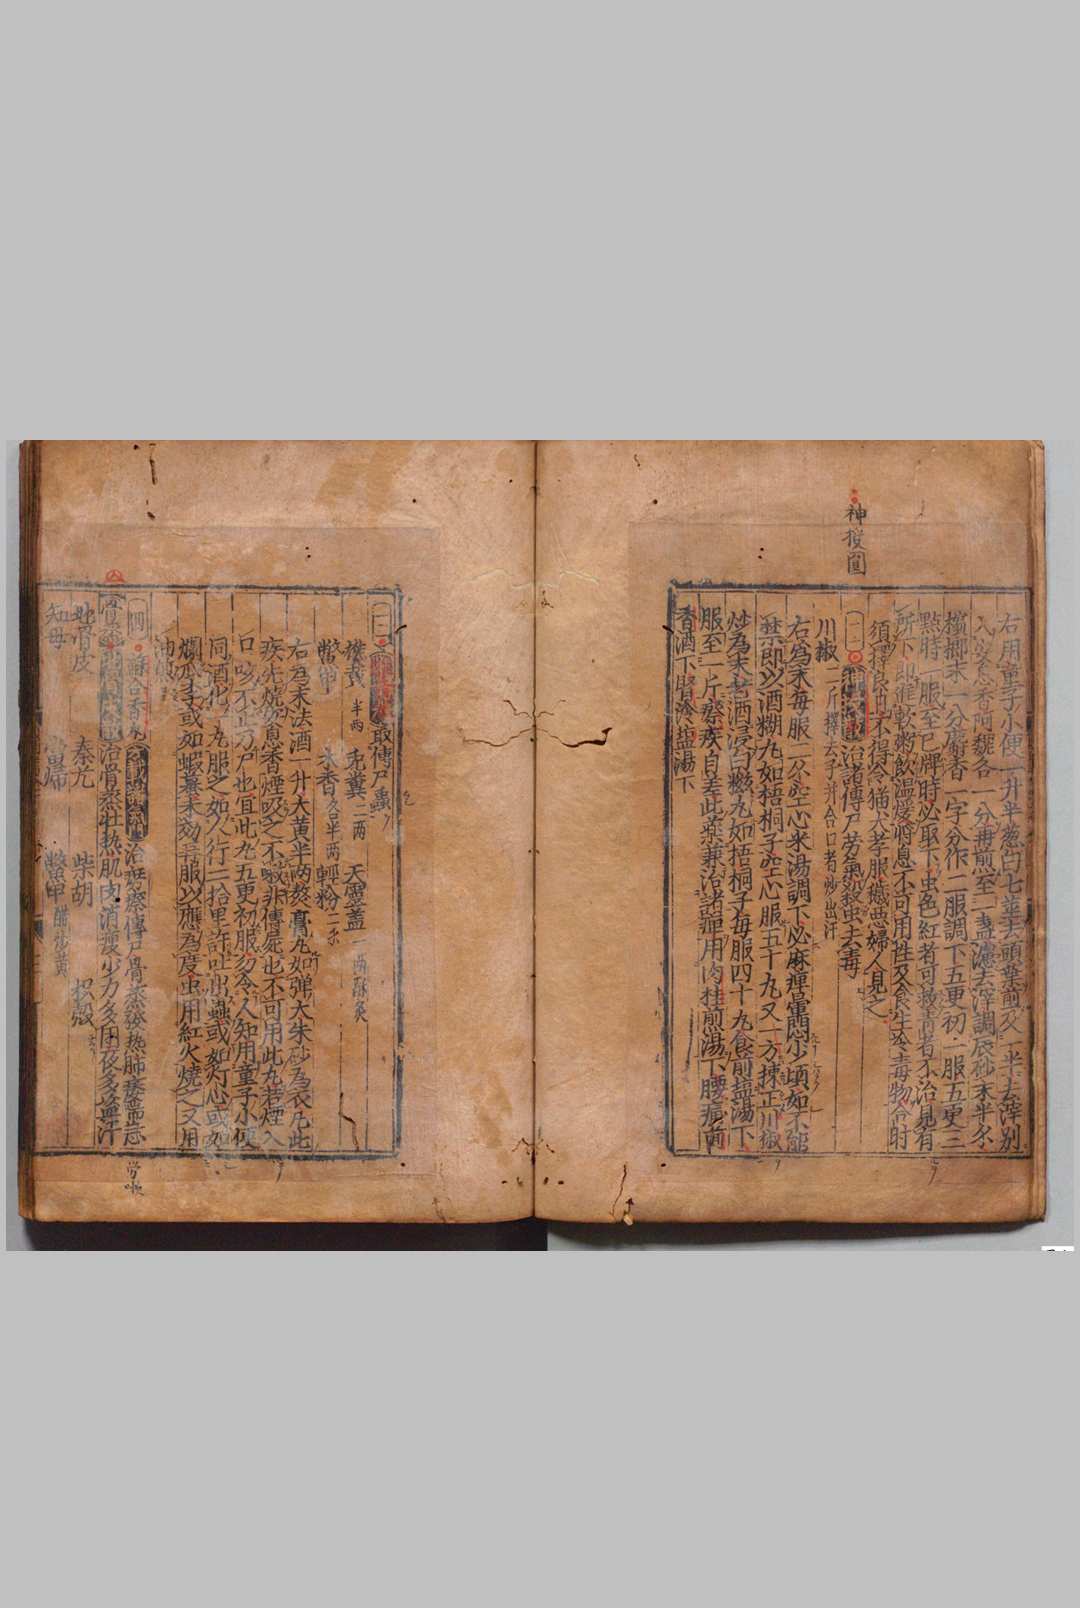 神授圓
右用童子小便一升半葱白七莖去頭葉煎及一半去滓別
入安息香阿魏各一分再煎至一盞濾去滓調辰砂末半分
檳榔末一分麝香一字分作二服調下五更初一服五更三
點時一服至巳牌時必取下虫色紅者可救青者不治見有
所下即進軟粥飲温煖將息不可用性及食生冷毒物合時
須擇良日不得令猫犬孝服穢惡婦人見之
治諸傳尸勞氣殺虫去毒
川椒二斤擇去子并合口者炒出汗
右爲末每服二分空心米湯調下必麻痺暈悶少頃如不能
禁即以酒糊丸如梧桐子空心服五十丸又一方揀正川椒
炒為末老酒浸白糕丸如梧桐子每服四十丸食前塩湯下
服至一斤瘵疾自差此藥兼治諸痺用肉桂煎湯下腰痛茴
香酒下腎冷塩湯下
取傳尸蟲
獖黃半兩 兎糞二兩 天靈盖一兩酥炙
鱉甲 木香各半兩 輕粉二分
右為末法酒一升大黃半兩熬膏丸如弹大朱砂為衣凡此
疾先燒安息香煙吸之不嗽非傳屍也不可用此丸若煙入
口咳不止乃尸也宜此丸五更初服勿令人知用童子小便
同酒化一丸服之如人行二拾里許吐出蟲或如灯心或如
爛瓜子或如蝦蟇未効再服以應為度虫用紅火燒之又用
油煎
四 蘇合香丸 治勞瘵傳尸骨蒸發热肺痿
治骨蒸壮热肌肉消瘦少力多困夜多盗汗
地骨皮 秦艽 柴胡 枳殼
知母 當歸 鱉甲醋炒黄
勞嗽